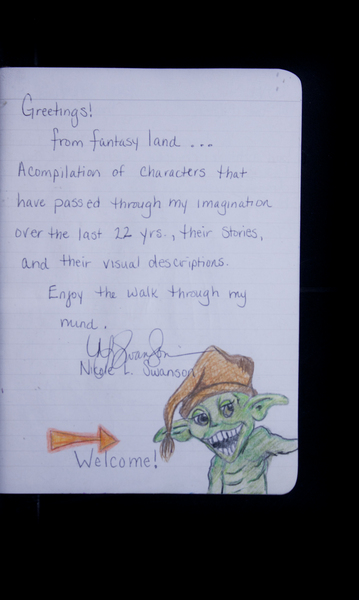 Greetings!
from fantasy land ...
A compilation of characters that
have passed through my imagination
over the last 22 yrs., their stories,
and their visual descriptions.
Enjoy the walk through my
mind.
Nicole L. Swanson
Welcome!